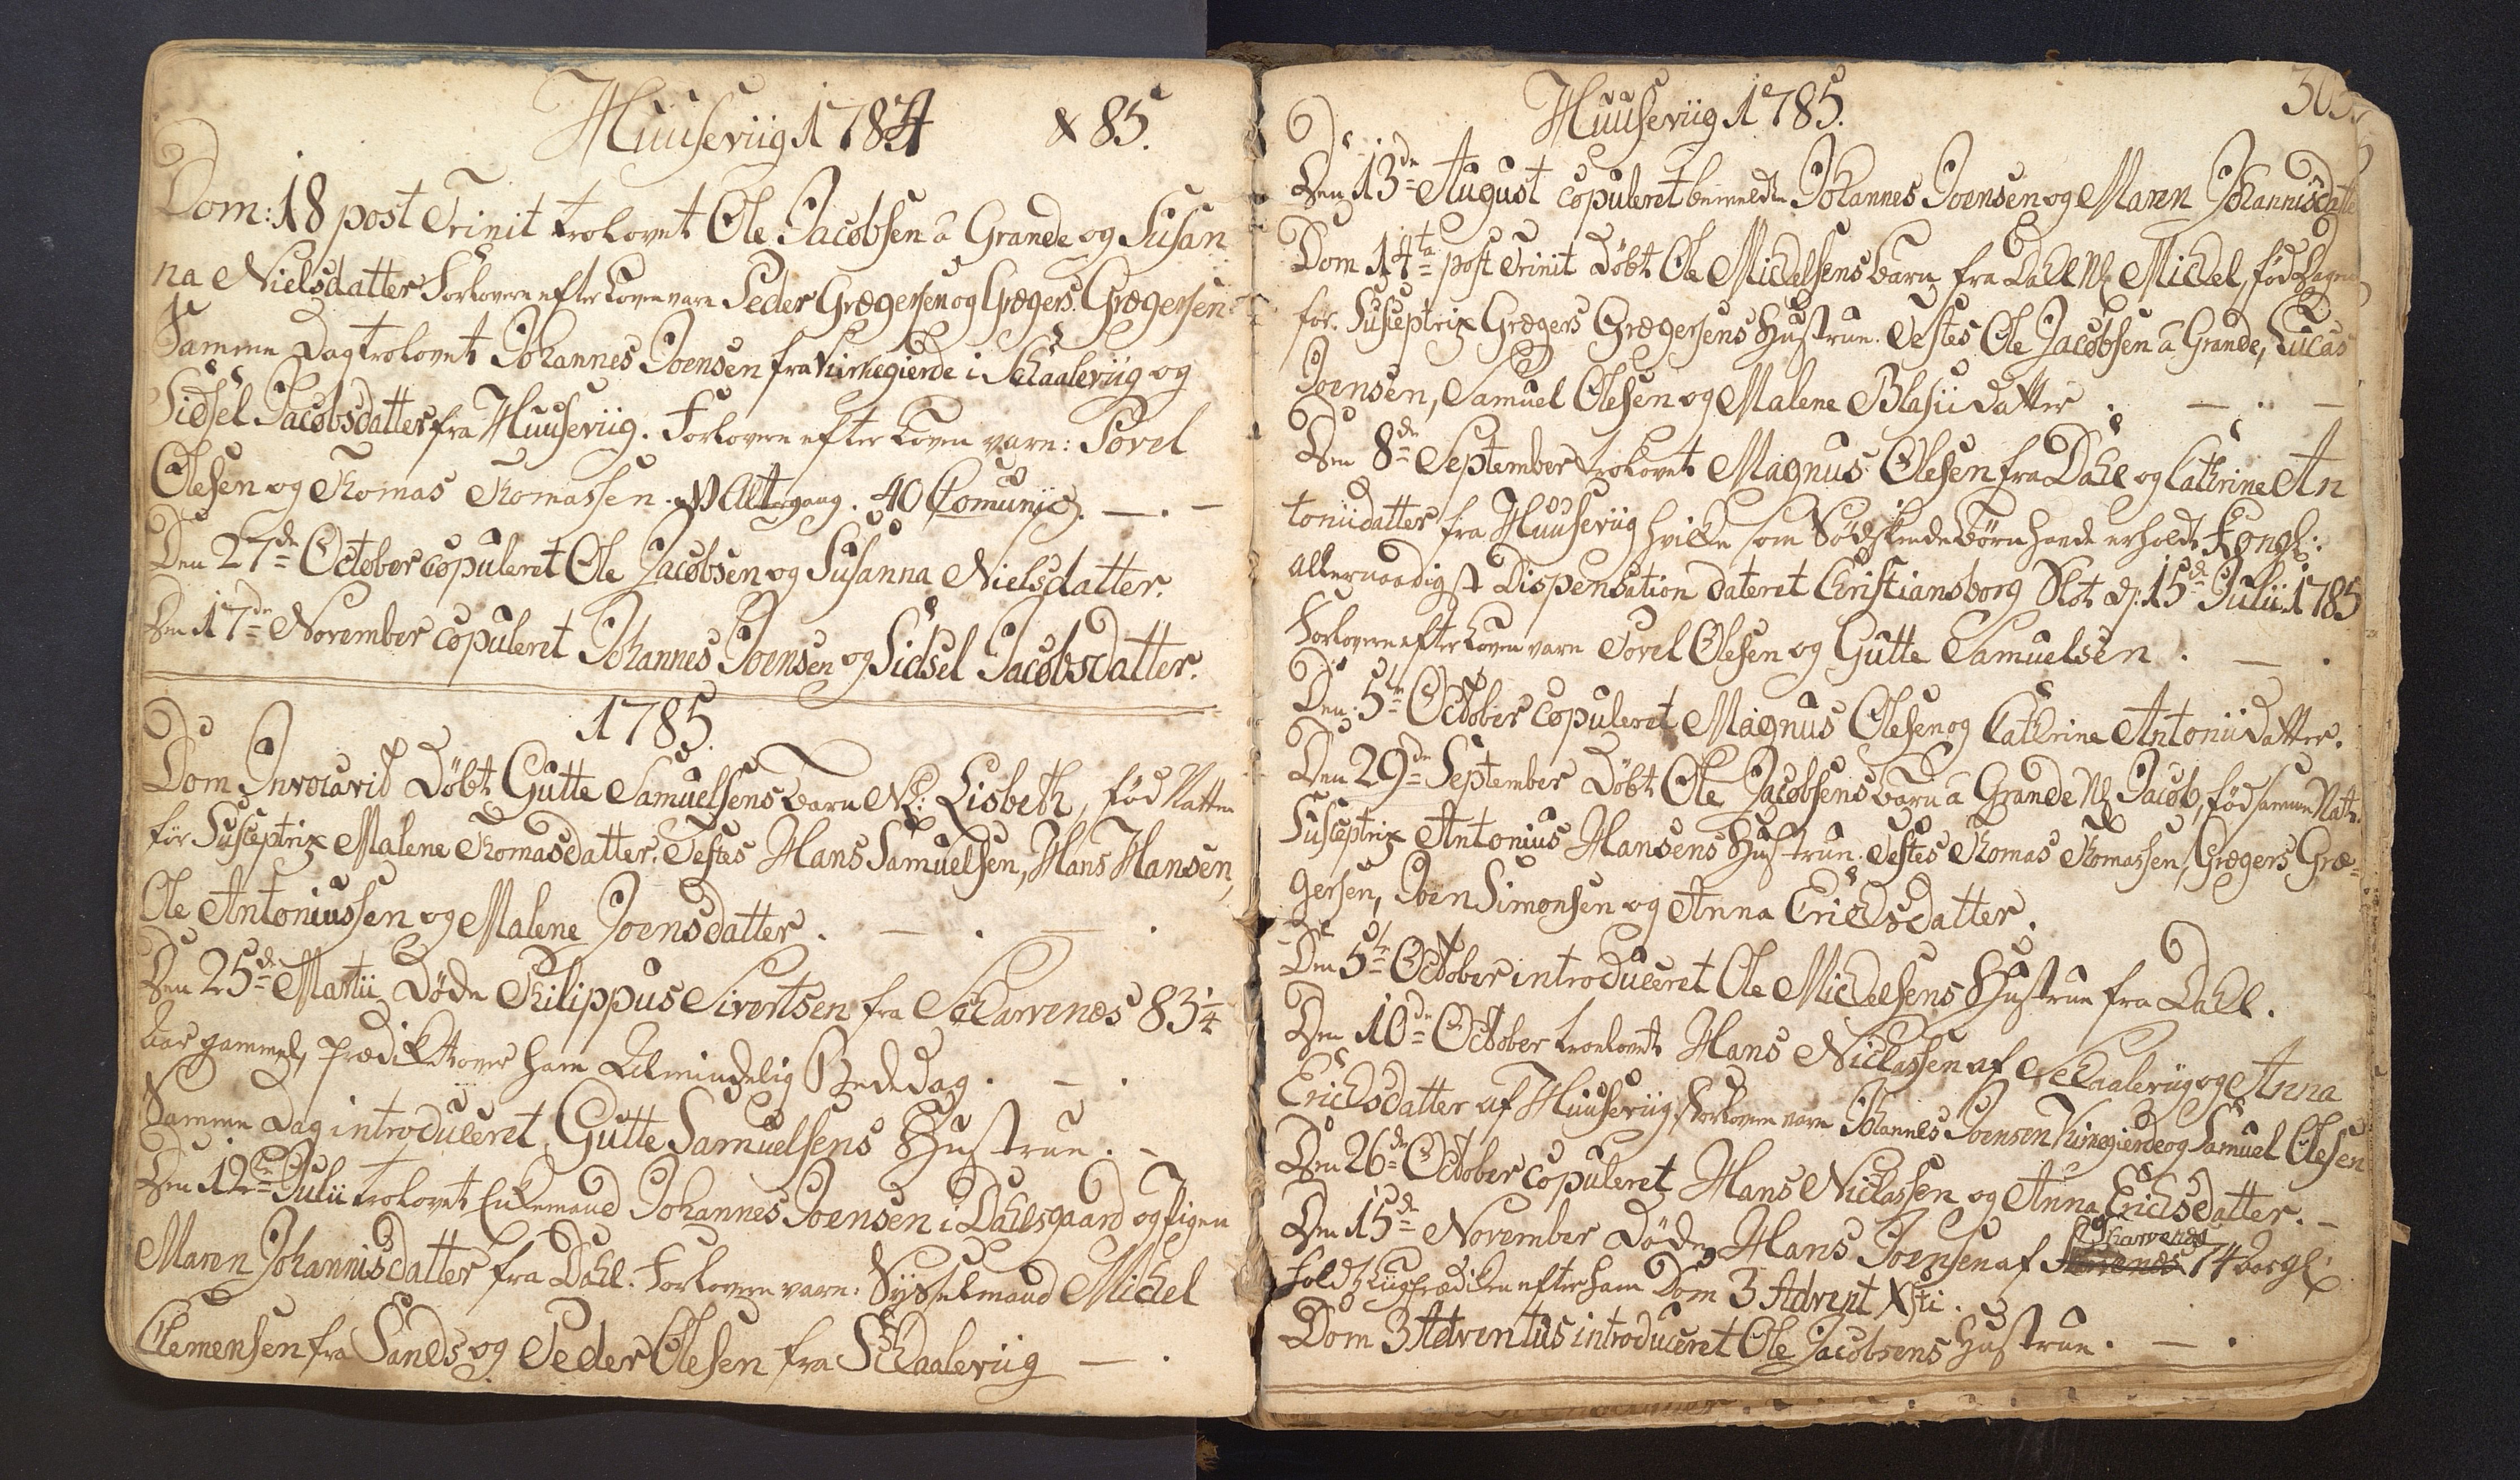 Huuseviig 1784 & 85.
Dom: 18 post Trinit trolovet Ole Jacobsen à Grande og Susan
na Nielsdatter Forlovere efter Loven vare Peder Grægersen og Grægers Grægersen
Samme Dag trolovet Johannes Joensen fra Kirkegierde i Schaaleviig og
Sidsel Jacobsdatter fra Huuseviig. Forlovere efter Loven vare: Povel
Olesen og Thomas Thomassen. Altergang. 40 Comunic.
Den 27de October copuleret Ole Jacobsen og Susanna Nielsdatter.
Den 17de November copuleret Johannes Joensen og Sidsel Jacobsdatter.
1785.
Dom Invocavit Döbt Gutte Samuelsens barn Nl: Lisbeth, fød Natten
för Susceptrix Malene Thomasdatter. Testes Hans Samuelsen, Hans Hansen,
Ole Antoniussen og Malene Joensdatter.
Den 25de Martii Døde Philippus Sivertsen fra Scharvenæs 83 1/4
Aar gammel, prædikt over ham Almindelig Bededag.
Samme Dag introduceret Gutte Samuelsens Hustrue.
Den 12te Julii trolovet Enkemand Johannes Joensen i Dahlsgaard og Pigen
Maren Johannisdatter fra Dahl. Forlovere vare: Sysselmand Michel
Clemensen fra Sands og Peder Olesen fra Schaaleviig
Huuseviig 1785.
Den 13de August copuleret bemeldte Johannes Joensen og Maren Johannisdatte
Dom 14ta post Trinit Döbt Ole Michelsens barn fra Dahl Nl Michel, fød Dagen
för. Susceptrix Grægers Grægersens Hustrue. Testes Ole Jacobsen à Grande, Lucas
Joensen, Samuel Olesen og Malene Blasiidatter
Den 8de September trolovet Magnus Olesen fra Dahl og Cathrine An
toniidatter fra Huuseviig hvilke som Sødskendebørn havde erholdt Kongl:
allernaadigst Dispensation dateret Christiansborg Slot d: 15de Julii 1785
Forlovere efter Loven vare Povel Olesen og Gutte Samuelsen.
Den 5te October copuleret Magnus Olesen og Cathrine Antoniidatter.
Den 29de September Döbt Ole Jacobsens barn à Grande Nl Jacob, fød samme Nat.
Susceptrix Antonius Hansens Hustrue. Testes Thomas Thomassen, Grægers Græ=
gersen, Joen Simonsen og Anna Erichsdatter.
Den 5te October introduceret Ole Michelsens Hustrue fra Dahl.
Den 10de October trolovet Hans Niclassen af Schaaleviig og Anna
Erichsdatter af Huuseviig, Forlovere vare Johannes Joensen Kirkegierde og Samuel Olesen
Den 26de October copuleret Hans Niclassen og Anna Erichsdatter.
Den 15de November Døde Hans Joensen af Scharvenæs 74 Aar gl:
holdt Liigprædiken efter ham Dom 3 Advent Xsti.
Dom 3 Adventus introduceret Ole Jacobsens Hustrue.